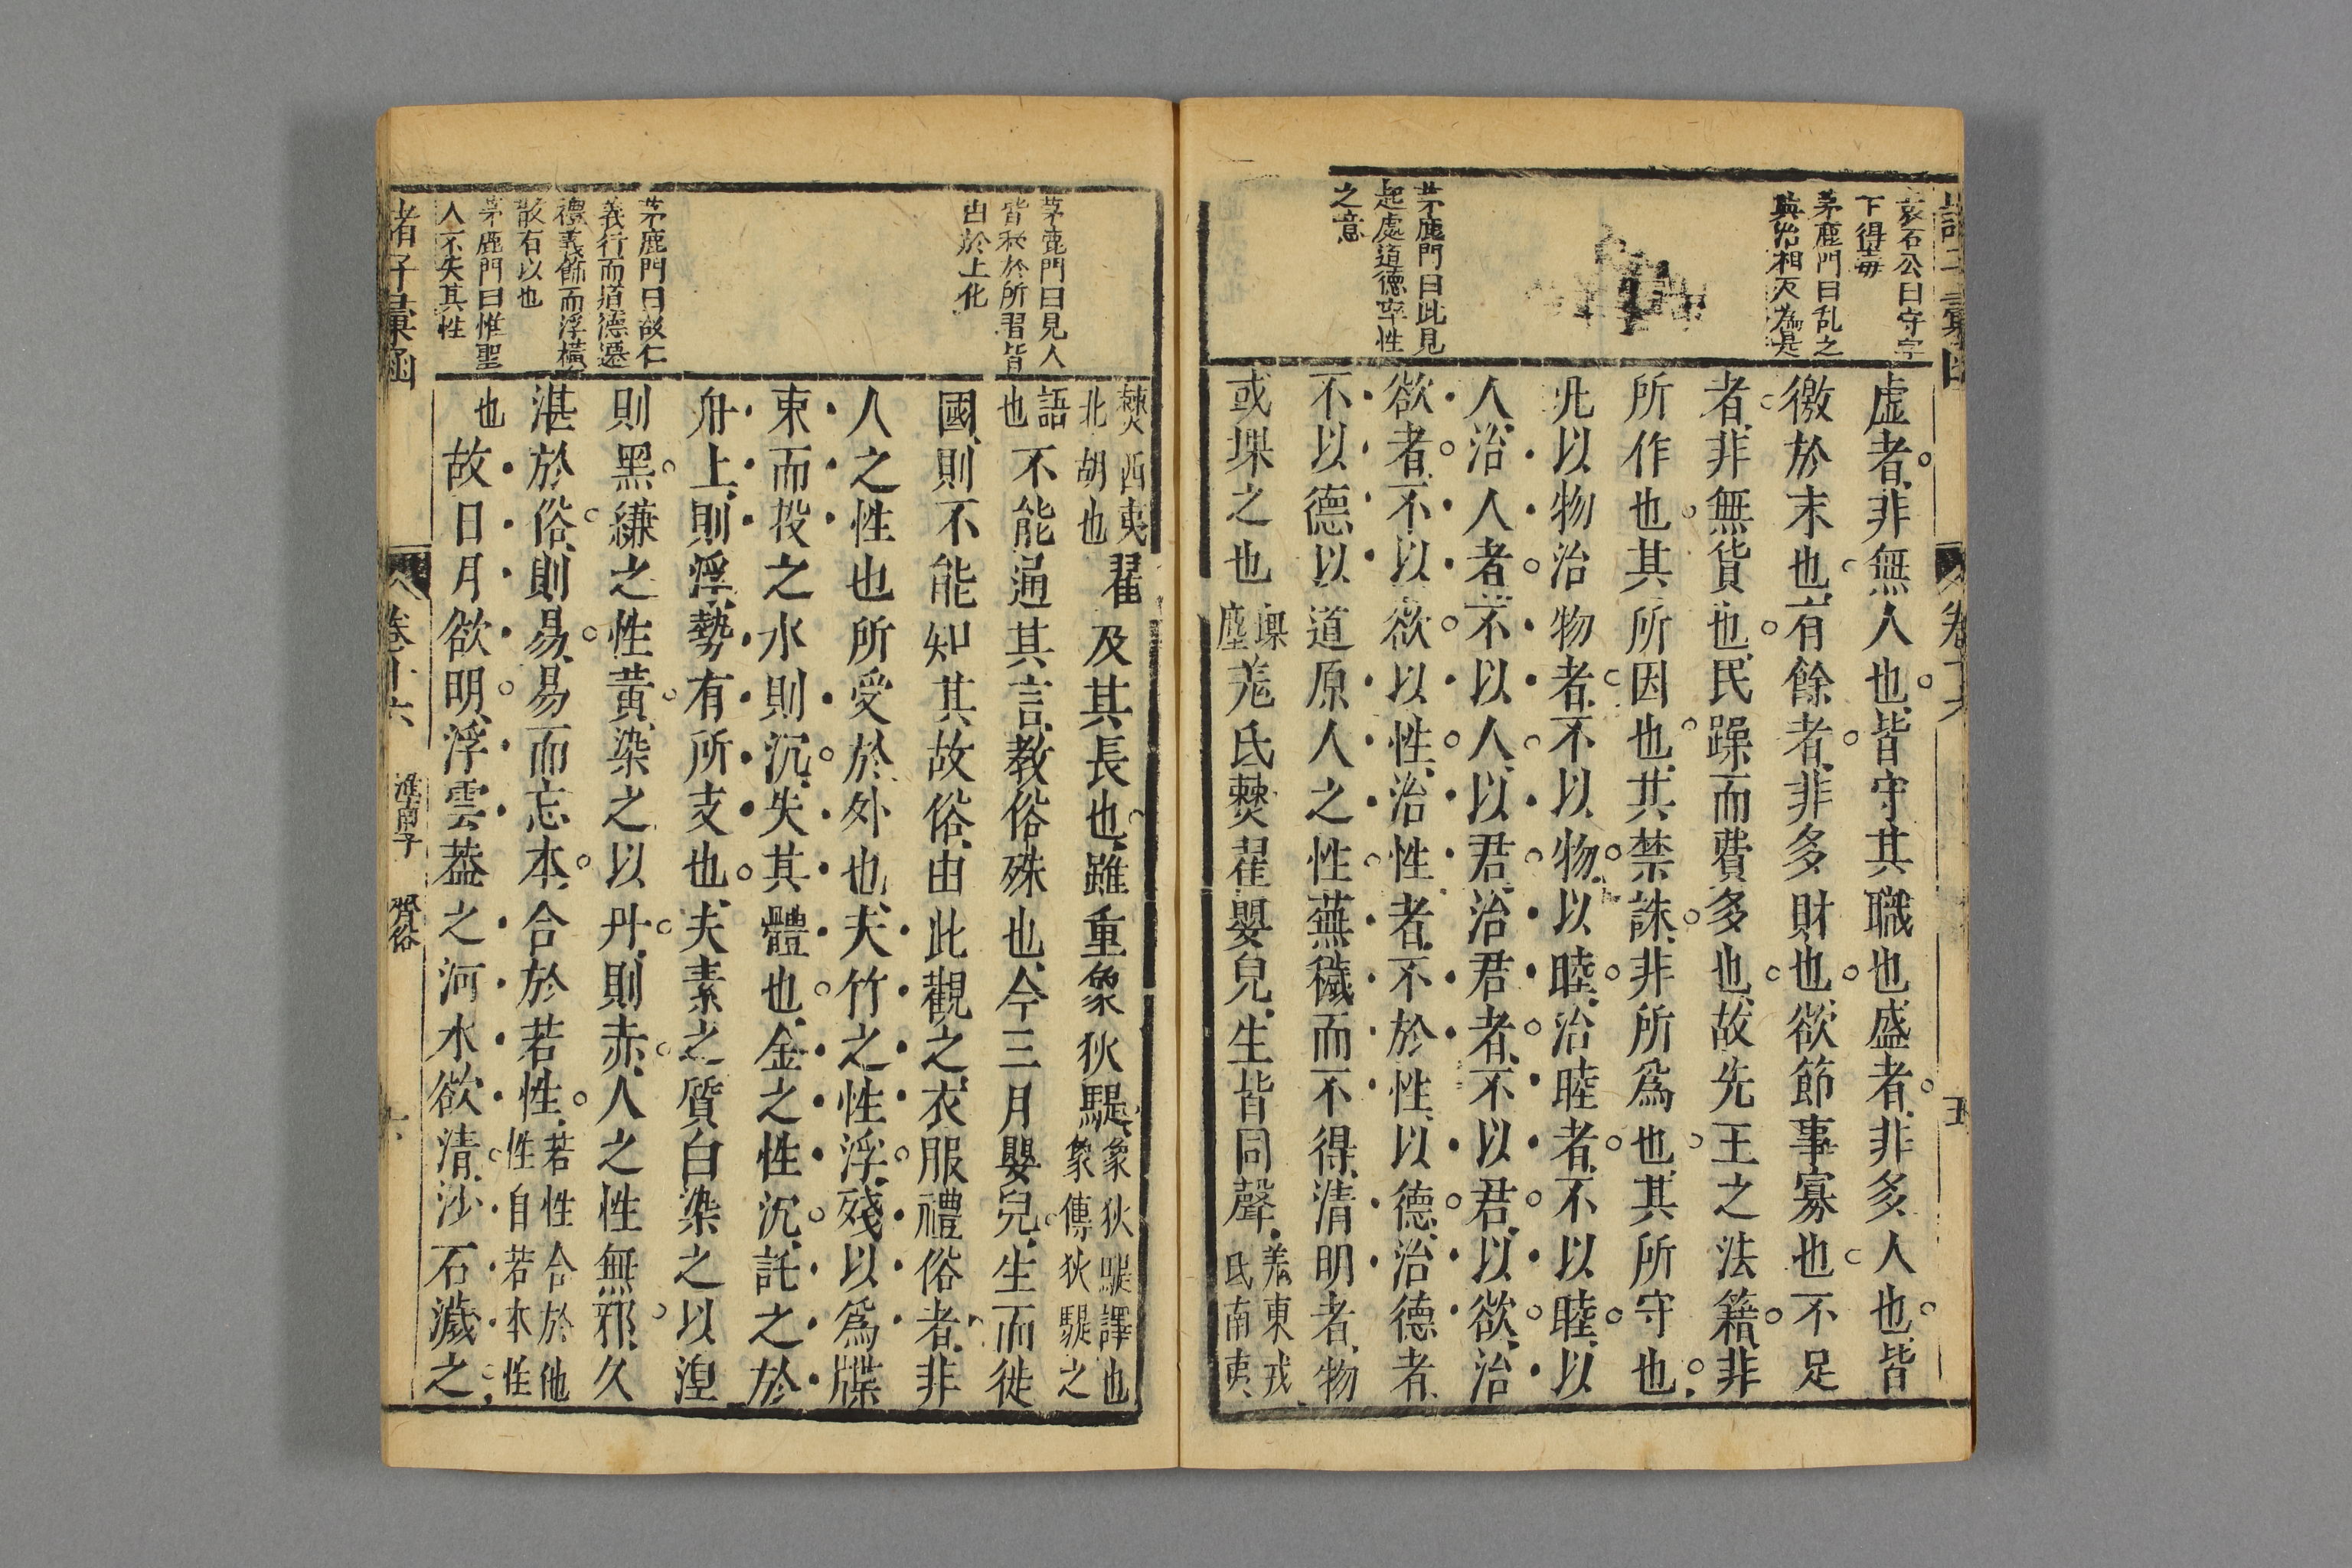 袁石公曰守字
下得毒
茅鹿門曰乱之
與治相反為是
茅鹿門曰此見
起處道德率性
之意
虛者非無人也皆守其職也盛者非多人也皆
徼於末也有餘者非多財也欲節事寡也不足
者非無貨也民躁而費多也故先王之法籍非
所作也其所因也其禁誅非所爲也其所守也
凡以物治物者不以物以睦治睦者不以睦以
人治人者不以人以君治君者不以君以欲治
欲者不以欲以性治性者不於性以德治德者
不以德以道原人之性蕪穢而不得清明者物
或堁之也
堁
塵
羌氐僰翟嬰兒生皆同聲
羌東戎
氐南夷
卷十六
五
茅鹿門曰見人
皆移於所習皆
由於上化
茅鹿門曰故仁
義行而道德遷
禮義飾而浮橫
散有以也
茅鹿門曰惟聖
人不失其性
僰西夷
北胡也
翟及其長也雖重象狄騠
象狄騠譯也
象傳狄騠之
語
也
不能通其言教俗殊也今三月嬰兒生而徙
國則不能知其故俗由此觀之衣服禮俗者非
人之性也所受於外也夫竹之性浮殘以爲牒
束而投之水則沉失其體也金之性沉託之於
舟上則浮勢有所支也夫素之質白染之以涅
則黑縑之性黃染之以丹則赤人之性無邪久
湛於俗則易易而忘本合於若性
若性合於他
性自若本性
也
故日月欲明浮雲葢之河水欲清沙石濊之
諸子彙函
卷十六
淮南子
齊俗